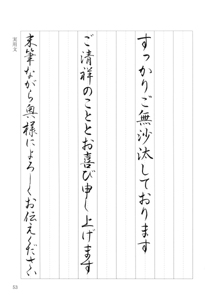 すっかりご無沙汰しております
ご清祥のこととお喜び申し上げます
末筆ながら奥様によろしくお伝えください
実用文
53